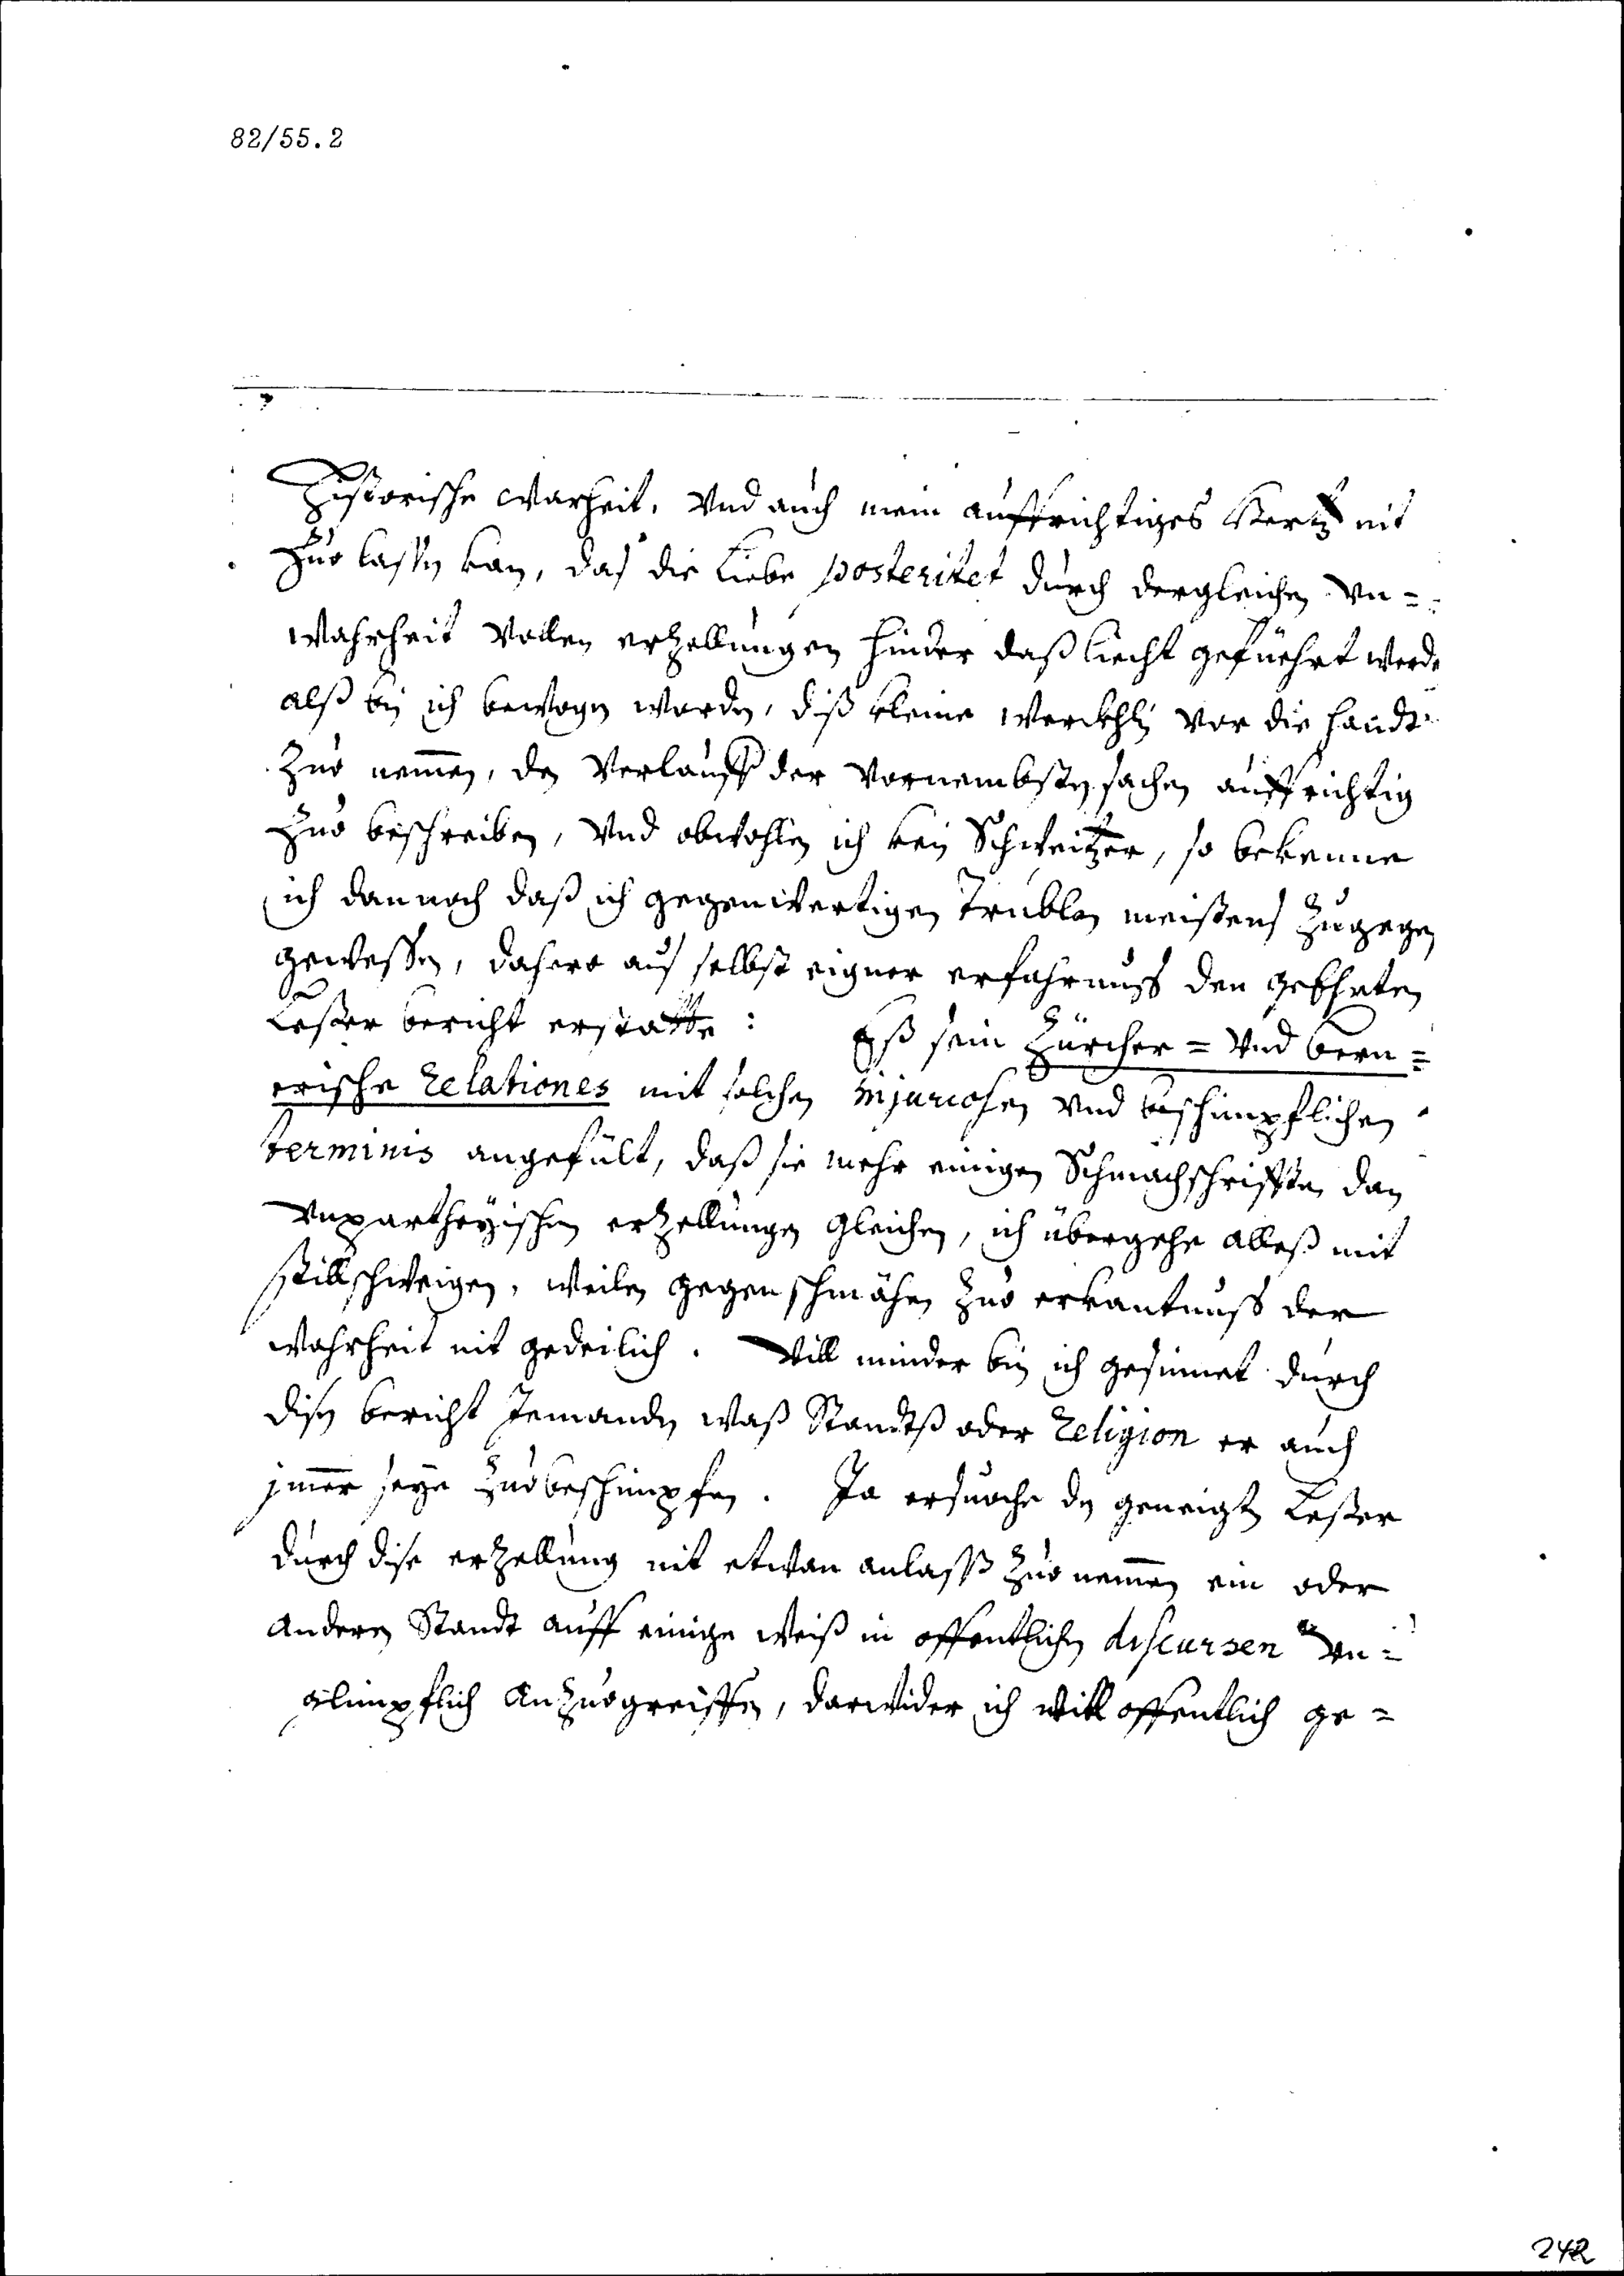 82/55.2
Historische warheit, Vnd auch mein auffrichtiges Hertz nit
Zuo lassen kan, das die Liebe posteritet durch dergleichen Vn=
wahrheit Vollen erzellungen hinder daß liecht gefüehrt werde
alß bin ich bewogen worden, diß kleine werckhli Vor die handt
Zuo nemmen, den Verlauff der Vornembsten sachen auffrichtig
Zuo beschreiben, Vnd obwohlen ich kein Schweitzer, so bekenne
ich dannoch daß ich gegenwertigen Trublen meistens Zugegen
gewessen, dahero aus selbst eigner erfahrnuss den geehrten
Lesser bericht erstatte: Eß sein Zürcher= Vnd bern=
erische Relationes mit solchen injuriosen Vnd beschimpflichen
terminis angefült, daß sie mehr einigen Schmachschrifften dan
Vnpartheyischen erzellungen gleichen, ich übergehe alleß mit
stillschweigen, weilen gegenschmähen Zuo erkantnuss der
wahrheit nit gedeilich. Vill minder bin ich gesinnet durch
disen bericht Jemanden waß Standtß oder Religion er auch
jmmer seye Zuobeschimpfen. Ja ersuoche den geneigten Lesser
durch dise erzellung nit etwan anlasß Zuo nemmen ein oder
anderen Standt auff einige weiß in offentlichen discursen Vn=
glimpflich anzuogreiffen, darwider ich will offentlich ge=
242